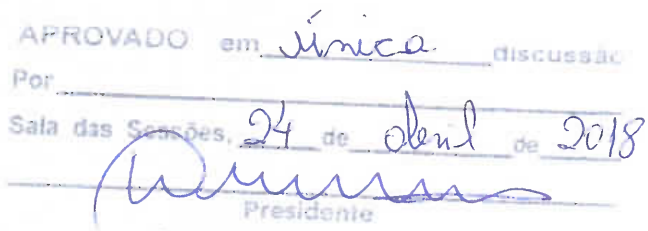 APROVADO em Única discussão
Por
Sala das Sessões, 24 de abril de 2018
Presidente